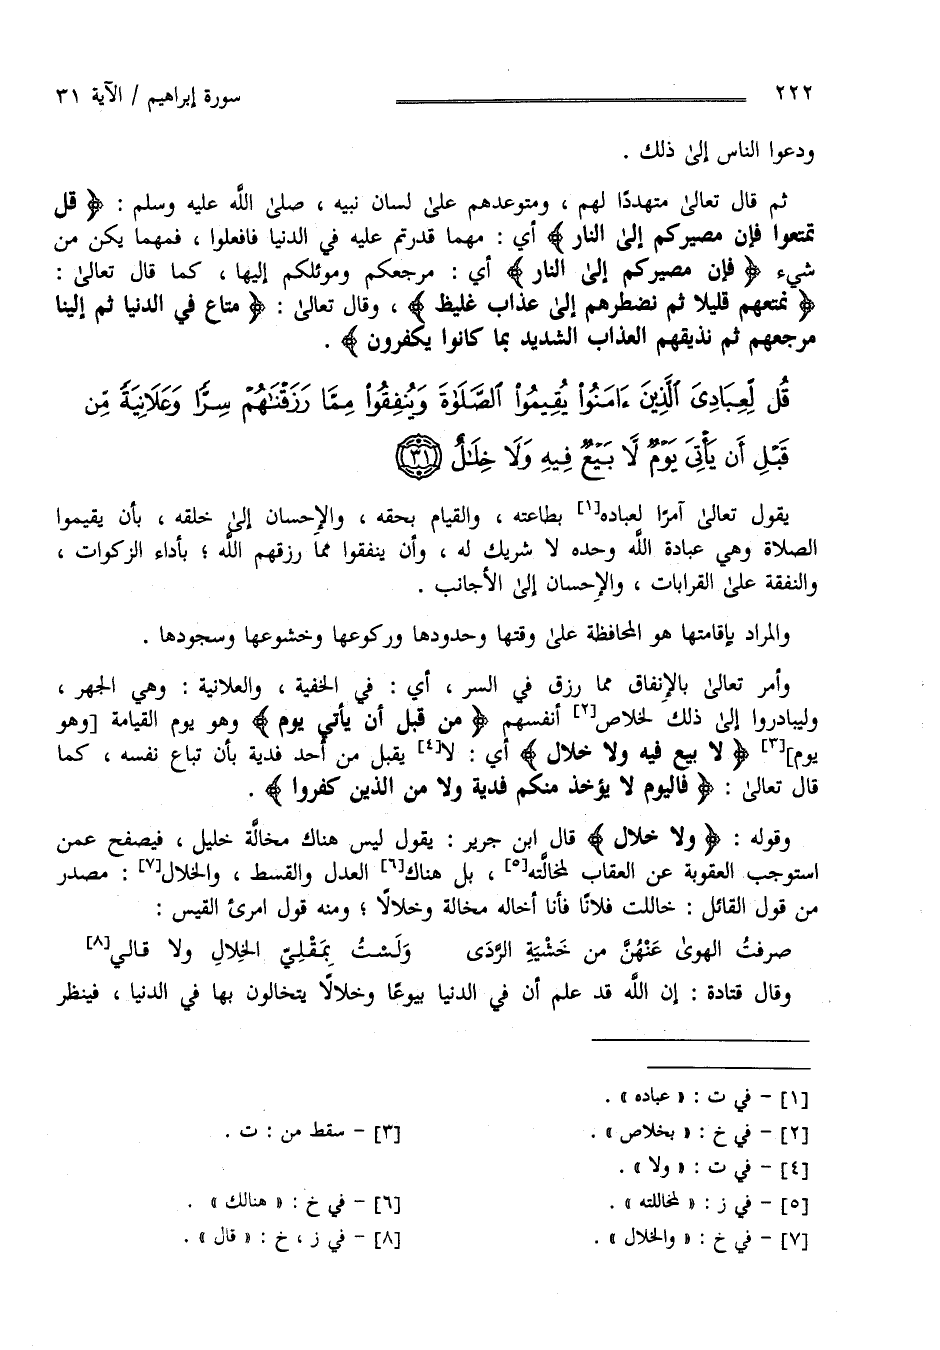 ٢٢٢ سورة إبراهيم / الآية ٣١
ودعوا الناس إلىٰ ذلك .
ثم قال تعالىٰ متهددًا لهم ، ومتوعدهم علىٰ لسان نبيه ، صلىٰ اللَّه عليه وسلم : ﴿ قل
تمتعوا فإن مصيركم إلىٰ النار ﴾ أي : مهما قدرتم عليه في الدنيا فافعلوا ، فمهما يكن من
شيء ﴿ فإن مصيركم إلىٰ النار ﴾ أي : مرجعكم وموئلكم إليها ، كما قال تعالىٰ :
﴿ نمتعهم قليلا ثم نضطرهم إلىٰ عذاب غليظ ﴾ ، وقال تعالىٰ : ﴿ متاع في الدنيا ثم إلينا
مرجعهم ثم نذيقهم العذاب الشديد بما كانوا يكفرون ﴾ .
قُل لِّعِبَادِىَ ٱلَّذِينَ ءَامَنُوا۟ يُقِيمُوا۟ ٱلصَّلَوٰةَ وَيُنفِقُوا۟ مِمَّا رَزَقْنَٰهُمْ سِرًّا وَعَلَانِيَةً مِّن
قَبْلِ أَن يَأْتِىَ يَوْمٌ لَّا بَيْعٌ فِيهِ وَلَا خِلَٰلٌ ٣١
يقول تعالىٰ آمرًا لعباده[١] بطاعته ، والقيام بحقه ، والإحسان إلىٰ خلقه ، بأن يقيموا
الصلاة وهي عبادة اللَّه وحده لا شريك له ، وأن ينفقوا مما رزقهم اللَّه ؛ بأداء الزكوات ،
والنفقة علىٰ القرابات ، والإحسان إلىٰ الأجانب .
والمراد بإقامتها هو المحافظة علىٰ وقتها وحدودها وركوعها وخشوعها وسجودها .
وأمر تعالىٰ بالإنفاق مما رزق في السر ، أي : في الخفية ، والعلانية : وهي الجهر ،
وليبادروا إلىٰ ذلك لخلاص[٢] أنفسهم ﴿ من قبل أن يأتي يوم ﴾ وهو يوم القيامة [وهو
يوم][٣] ﴿ لا بيع فيه ولا خلال ﴾ أي : لا[٤] يقبل من أحد فدية بأن تباع نفسه ، كما
قال تعالىٰ : ﴿ فاليوم لا يؤخذ منكم فدية ولا من الذين كفروا ﴾ .
وقوله : ﴿ ولا خلال ﴾ قال ابن جرير : يقول ليس هناك مخالَّة خليل ، فيصفح عمن
استوجب العقوبة عن العقاب لمخالَّته[٥] ، بل هناك[٦] العدل والقسط ، والخلال[٧] : مصدر
من قول القائل : خاللت فلانًا فأنا أخاله مخالة وخلالًا ؛ ومنه قول امرئ القيس :
صرفتُ الهوىٰ عَنْهُنَّ من خَشْيَةِ الرَّدَى وَلَسْتُ بِمَقْلِيّ الخِلالِ ولا قالي[٨]
وقال قتادة : إن اللَّه قد علم أن في الدنيا بيوعًا وخلالًا يتخالون بها في الدنيا ، فينظر
[١] – في ت : « عباده » .
[٢] – في خ : « بخلاص » . [٣] – سقط من : ت .
[٤] – في ت : « ولا » .
[٥] – في ز : « لمخاللته » . [٦] – في خ : « هنالك » .
[٧] – في خ : « والخلال » . [٨] – في ز ، خ : « قال » .